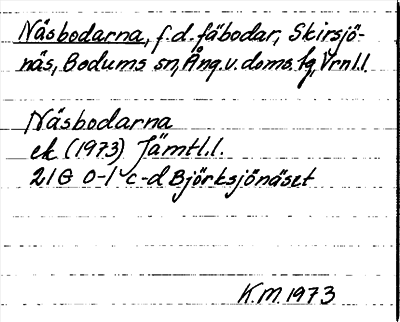 Näsbodarna, f.d. fäbodar, Skirsjö-
näs, Bodums sn, Ång.v.doms.fg, Vrnl.l.
Näsbodarna
ek (1973) Jämtl.l.
21G 0-1 c-d Björksjönäset
K.M. 1973